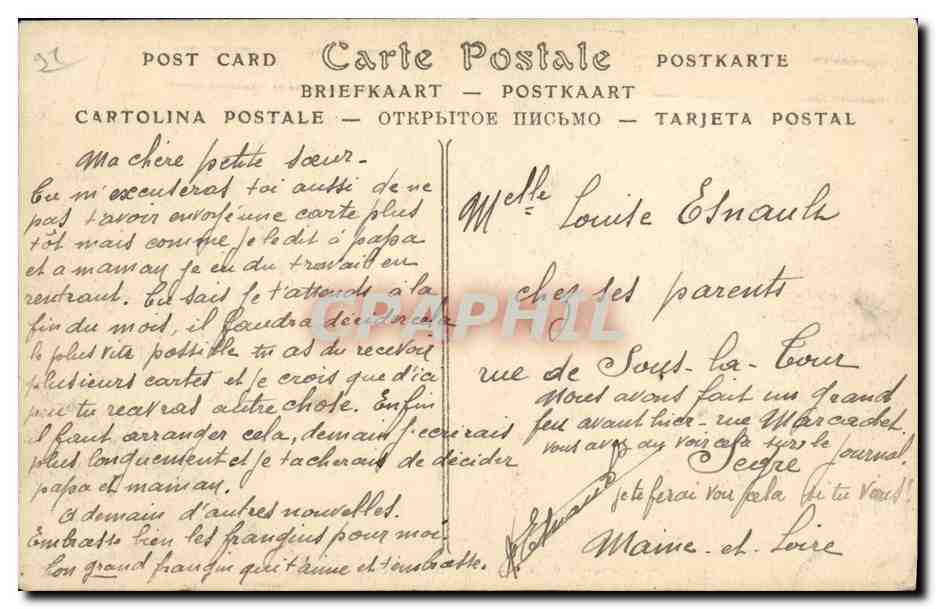 POST CARD Carte Postale POSTKARTE
BRIEFKAART — POSTKAART
CARTOLINA POSTALE — ОТКРЫТОЕ ПИСЬМО — TARJETA POSTAL
Ma chère petite sœur.
Tu m'excuseras toi aussi de ne
pas t'avoir envoyé une carte plus
tôt mais comme je le dit à papa
et a maman je eu du travail en
rentrant. Tu sais je t'attends à la
fin du mois, il faudra décider cela
le plus vite possible tu as du recevoir
plusieurs cartes et je crois que d'ici
peu tu recevras autre chose. Enfin
il faut arranger cela, demain j'ecrirais
plus longuement et je tacherais de décider
papa et maman.
A demain d'autres nouvelles.
Embrasse bien les frangins pour moi.
Ton grand frangin qui t'aime et t'embrasse.
Esnault
Melle Louise Esnault
chez ses parents
rue de Sous-la-Tour
nous avons fait un grand
feu avant hier - rue Marcadet.
vous avez du voir cela sur le journal.
Segré
je te ferai voir cela si tu viens!
Maine-et-Loire
CPAPHIL